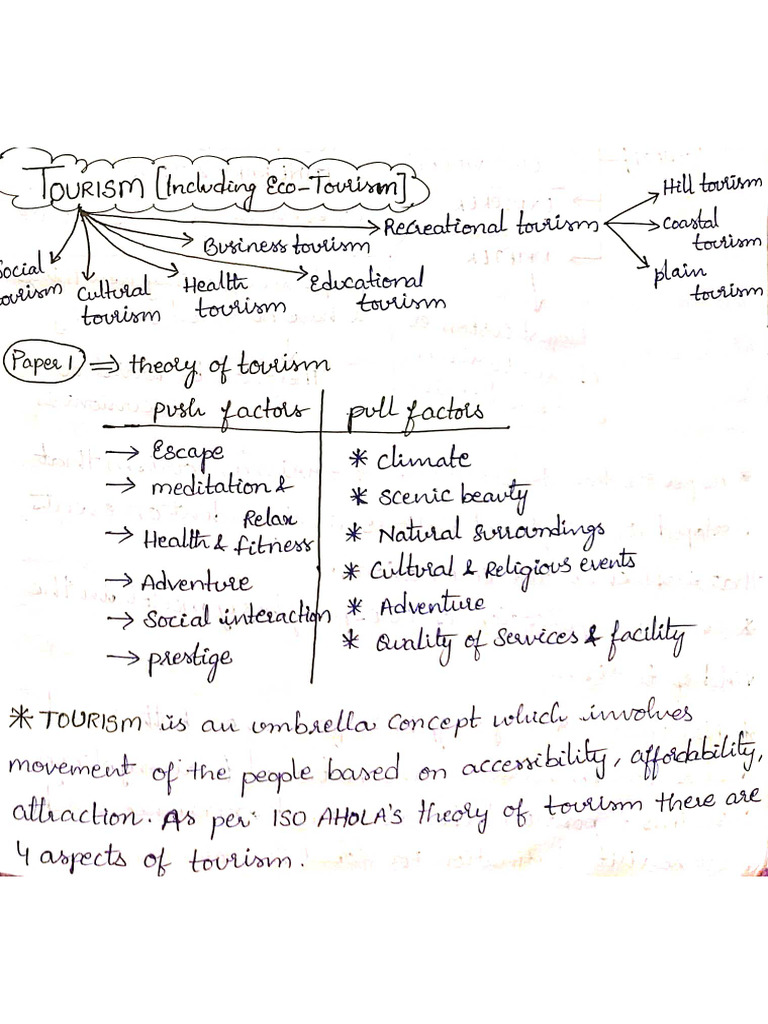 TOURISM [Including Eco-Tourism]
Hill tourism
Recreational tourism
Coastal
tourism
Business tourism
plain
tourism
Social
tourism
Cultural
tourism
Health
tourism
Educational
tourism
Paper 1 ⇒ theory of tourism
push factors pull factors
→ Escape
* climate
→ meditation &
Relax
* scenic beauty
→ Health & fitness
* Natural surroundings
* Cultural & Religious events
→ Adventure
* Adventure
→ Social interaction
* Quality of services & facility
→ prestige
* TOURISM is an umbrella concept which involves
movement of the people based on accessibility, affordability,
attraction. As per ISO AHOLA'S theory of tourism there are
4 aspects of tourism.